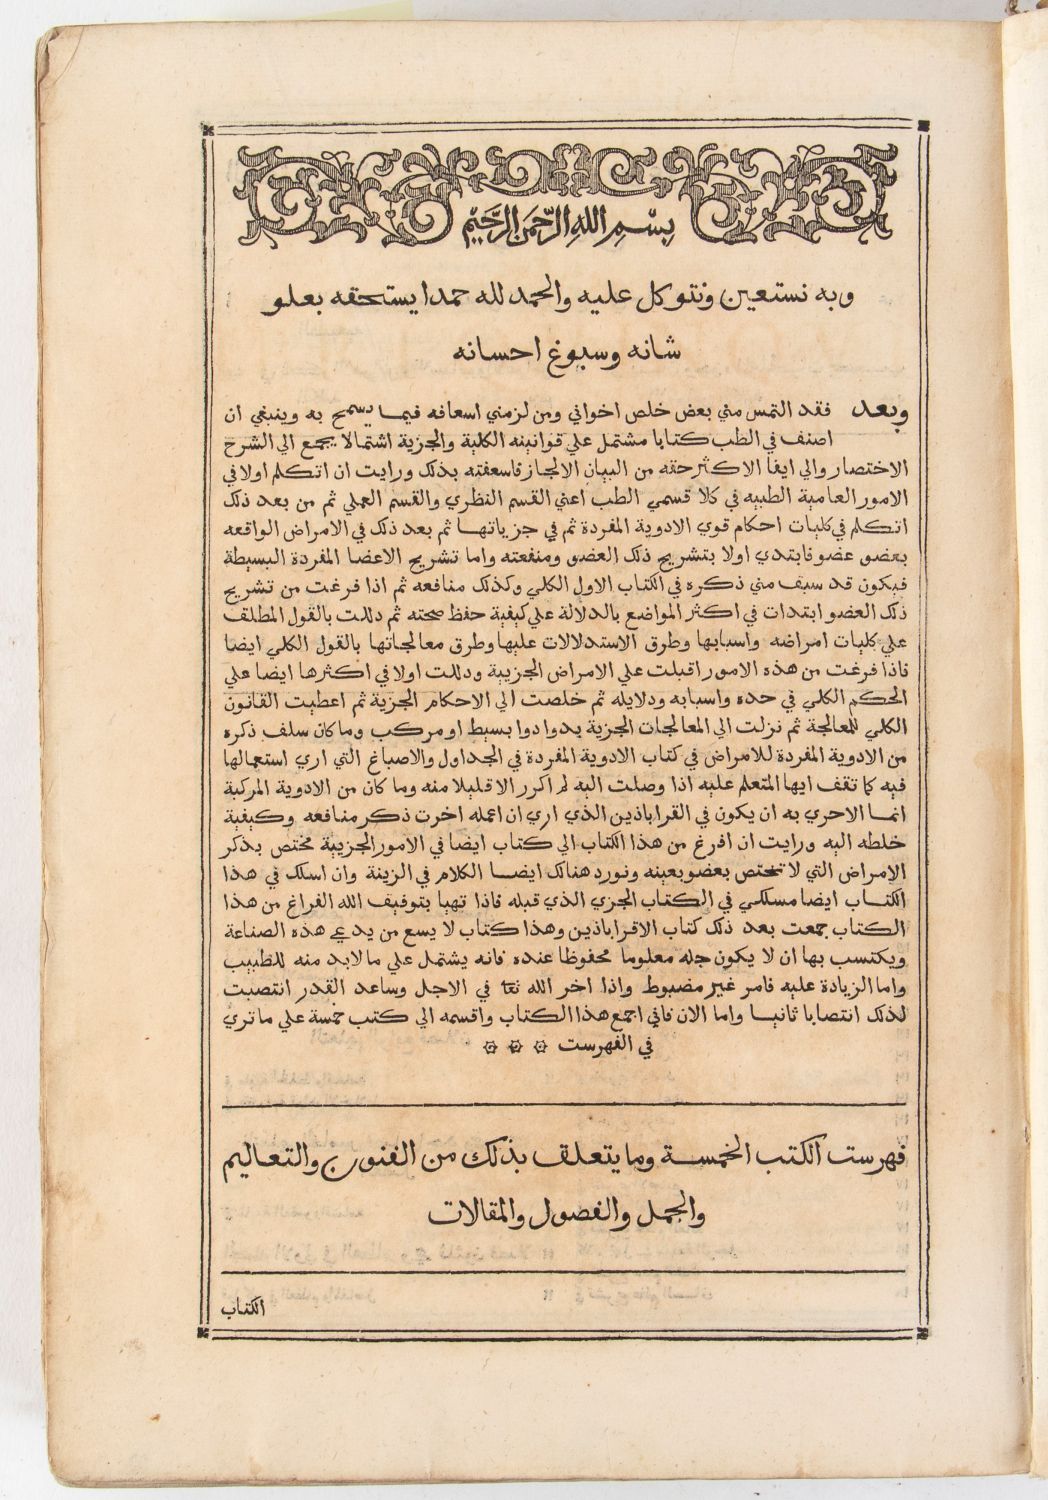 بِسْمِ اللهِ الرَّحْمَنِ الرَّحَيْمِ
وبه نستعين ونتوكل عليه والحمد لله حمدا يستحقه بعلو
شانه وسبوغ احسانه
وبعد فقد التمس مني بعض خلص اخواني ومن لزمني اسعافه فيما يسمح به وينبغي ان
اصنف في الطب كتابا مشتمل علي قوانينه الكلية والجزية اشتمالا يجمع الي الشرح
الاختصار والي ايفا الاكثر حقه من البيان الايجاز فاسعفته بذلك ورايت ان اتكلم اولا في
الامور العامية الطبيه في كلا قسمي الطب اعني القسم النظري والقسم العملي ثم من بعد ذلك
اتكلم في كليات احكام قوي الادوية المفردة ثم في جزياتها ثم بعد ذلك في الامراض الواقعه
بعضو عضو فابتدي اولا بتشريح ذلك العضو ومنفعته واما تشريح الاعضا المفردة البسيطة
فيكون قد سبف مني ذكره في الكتاب الاول الكلي وكذلك منافعه ثم اذا فرغت من تشريح
ذلك العضو ابتدات في اكثر المواضع بالدلالة علي كيفية حفظ صحته ثم دللت بالقول المطلف
علي كليات امراضه واسبابها وطرق الاستدلالات عليها وطرق معالجاتها بالقول الكلي ايضا
فاذا فرغت من هذه الامور اقبلت علي الامراض الجزيية ودللت اولا في اكثرها ايضا علي
الحكم الكلي في حده واسبابه ودلايله ثم خلصت الي الاحكام الجزية ثم اعطيت القانون
الكلي للمعالجة ثم نزلت الي المعالجات الجزية بدوا دوا بسيط او مركب وما كان سلف ذكره
من الادوية المفردة للامراض في كتاب الادوية المفردة في الجداول والاصباغ التي اري استعمالها
فيه كما تقف ايها المتعلم عليه اذا وصلت اليه لم اكرر الا قليلا منه وما كان من الادوية المركبة
انما الاحري به ان يكون في القراباذين الذي اري ان اعمله اخرت ذكر منافعه وكيفية
خلطه اليه ورايت ان افرغ من هذا الكتاب الي كتاب ايضا في الامور الجزيية مختص بذكر
الامراض التي لا تختص بعضو بعينه ونورد هنالك ايضا الكلام في الزينة وان اسلك في هذا
الكتاب ايضا مسلكي في الكتاب الجزي الذي قبله فاذا تهيا بتوفيف الله الفراغ من هذا
الكتاب جمعت بعد ذلك كتاب الاقراباذين وهذا كتاب لا يسع من يدعي هذه الصناعة
ويكتسب بها ان لا يكون جله معلوما محفوظا عنده فانه يشتمل علي ما لابد منه للطبيب
واما الزيادة عليه فامر غير مضبوط واذا اخر الله تعا في الاجل وساعد القدر انتصبت
لذلك انتصابا ثانيا واما الان فاني اجمع هذا الكتاب واقسمه الي كتب خمسة علي ما تري
في الفهرست
فهرست الكتب الخمسة وما يتعلف بذلك من الفنون والتعاليم
والجمل والفصول والمقالات
الكتاب